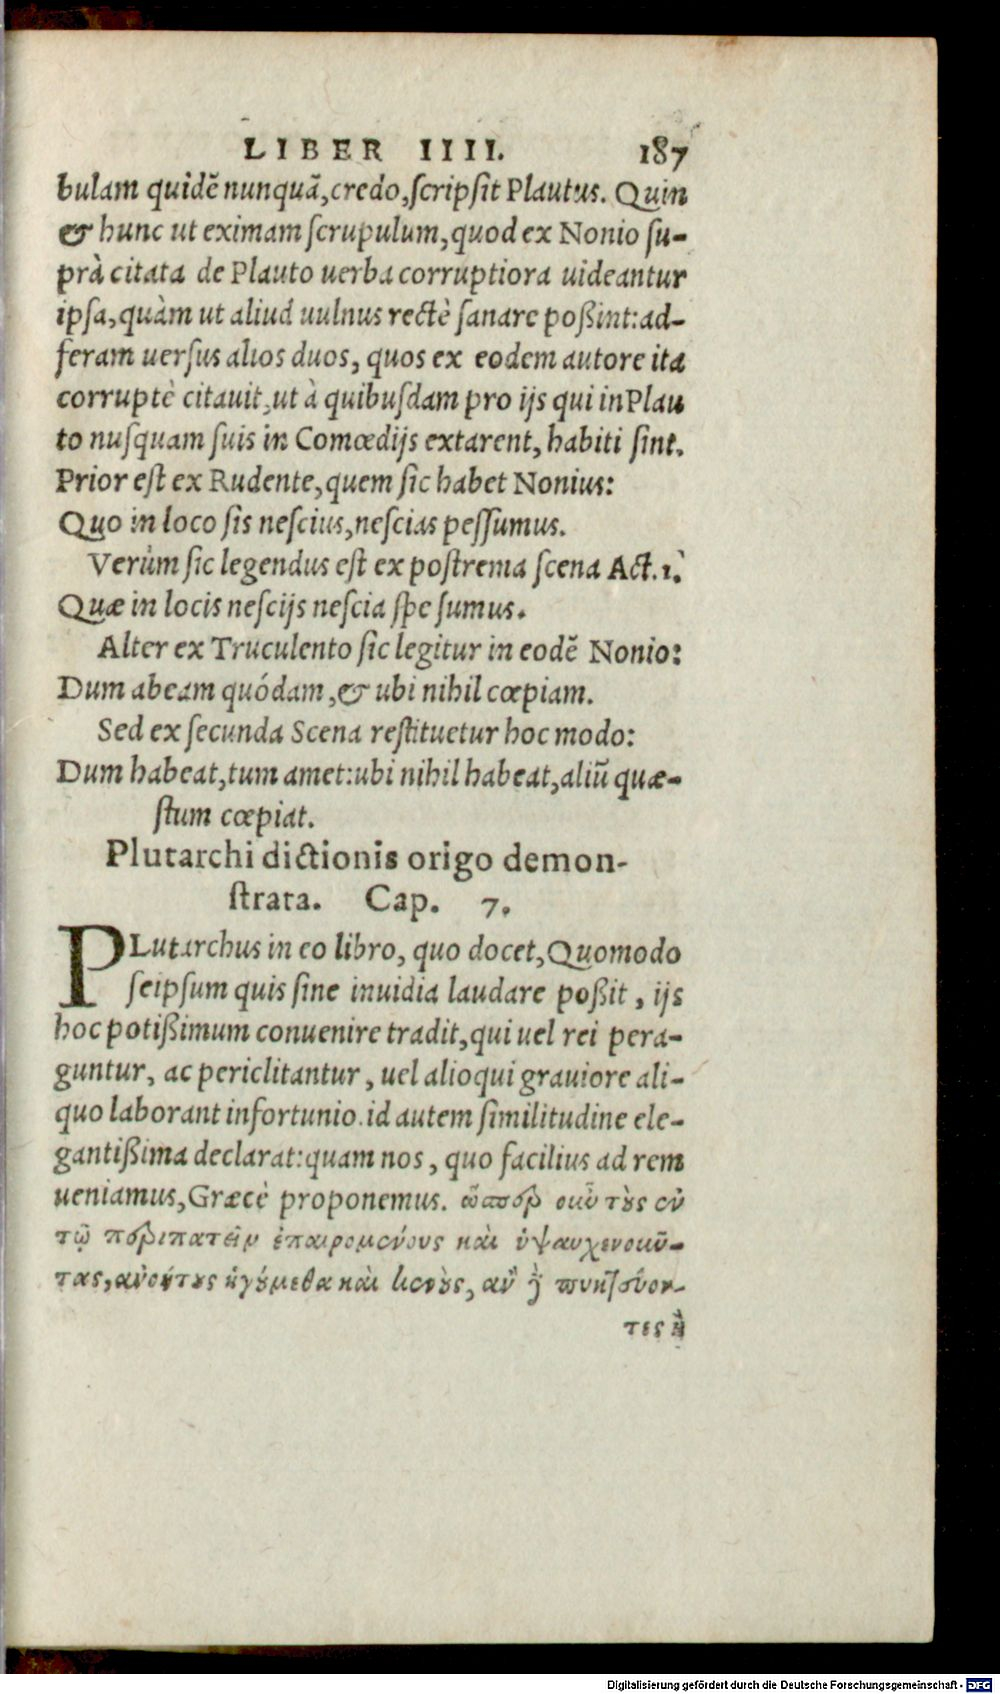 LIBER IIII. 187
bulam quidẽ nunquã, credo, scripsit Plautus. Quin
& hunc ut eximam scrupulum, quod ex Nonio su-
prà citata de Plauto uerba corruptiora uideantur
ipsa, quàm ut aliud uulnus rectè sanare poßint: ad-
feram uersus alios duos, quos ex eodem autore ita
corruptè citauit, ut à quibusdam pro ijs qui in Plau
to nusquam suis in Comœdijs extarent, habiti sint.
Prior est ex Rudente, quem sic habet Nonius:
Quo in loco sis nescius, nescias pessumus.
Verùm sic legendus est ex postrema scena Act. 1.
Quæ in locis nescijs nescia spe sumus.
Alter ex Truculento sic legitur in eodẽ Nonio:
Dum abeam quódam, & ubi nihil cœpiam.
Sed ex secunda Scena restituetur hoc modo:
Dum habeat, tum amet: ubi nihil habeat, aliũ quæ-
stum cœpiat.
Plutarchi dictionis origo demon-
strata. Cap. 7.
PLutarchus in eo libro, quo docet, Quomodo
seipsum quis sine inuidia laudare poßit, ijs
hoc potißimum conuenire tradit, qui uel rei pera-
guntur, ac periclitantur, uel alioqui grauiore ali-
quo laborant infortunio. id autem similitudine ele-
gantißima declarat: quam nos, quo facilius ad rem
ueniamus, Græcè proponemus. ὥσπερ οὖν τοὺς ἐν
τῷ περιπατεῖν ἐπαιρομένους καὶ ὑψαυχενοῦν-
τας, ἀνοήτους ἡγούμεθα καὶ κενοὺς, ἂν δὲ πυκτεύον-
τες ἢ
Digitalisierung gefördert durch die Deutsche Forschungsgemeinschaft - DFG